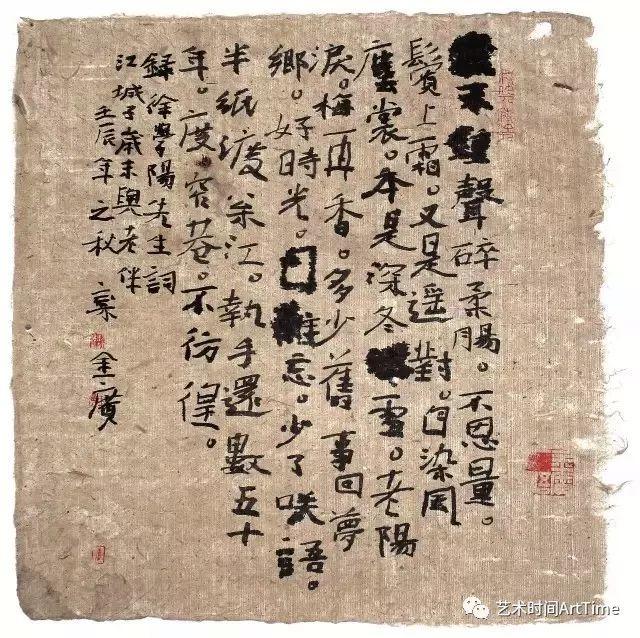 聲碎柔腸。不思量。
鬢上霜。又是遥對。白染風
塵裳。本是深冬雪。老陽
淚。梅再香。多少舊事回夢
鄉。好時光。難忘。少了咲語。
半紙渡江。執手還數五十
年。度窄巷。不彷徨。
錄徐學陽先生詞
江城子歲末與老伴
壬辰年之秋 金廣
艺术时间ArtTime